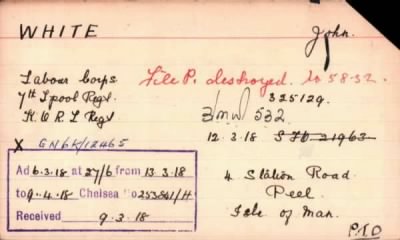 WHITE John.
Labour Corps File P. destroyed. 10 58-32.
7th L'pool Regt. 325129.
K.O.R.L Regt 532
12.3.18
X GN6K/12465
Ad 6.3.18 at 27/6 from 13.3.18
to 9.4.18 Chelsea No 253841/H
Received 9.3.18
4 Station Road
Peel
Isle of Man.
P.T.O